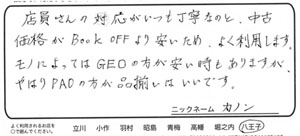 店員さんの対応がいつも丁寧なのと、中古
価格がBook OFFより安いため、よく利用します。
モノによってはGEOの方が安い時もありますが、
やはりPAOの方が品揃いはいいです。
ニックネーム カノン
よく利用されるお店を
○で囲んでください。
立川 小作 羽村 昭島 青梅 高幡 堀之内 八王子